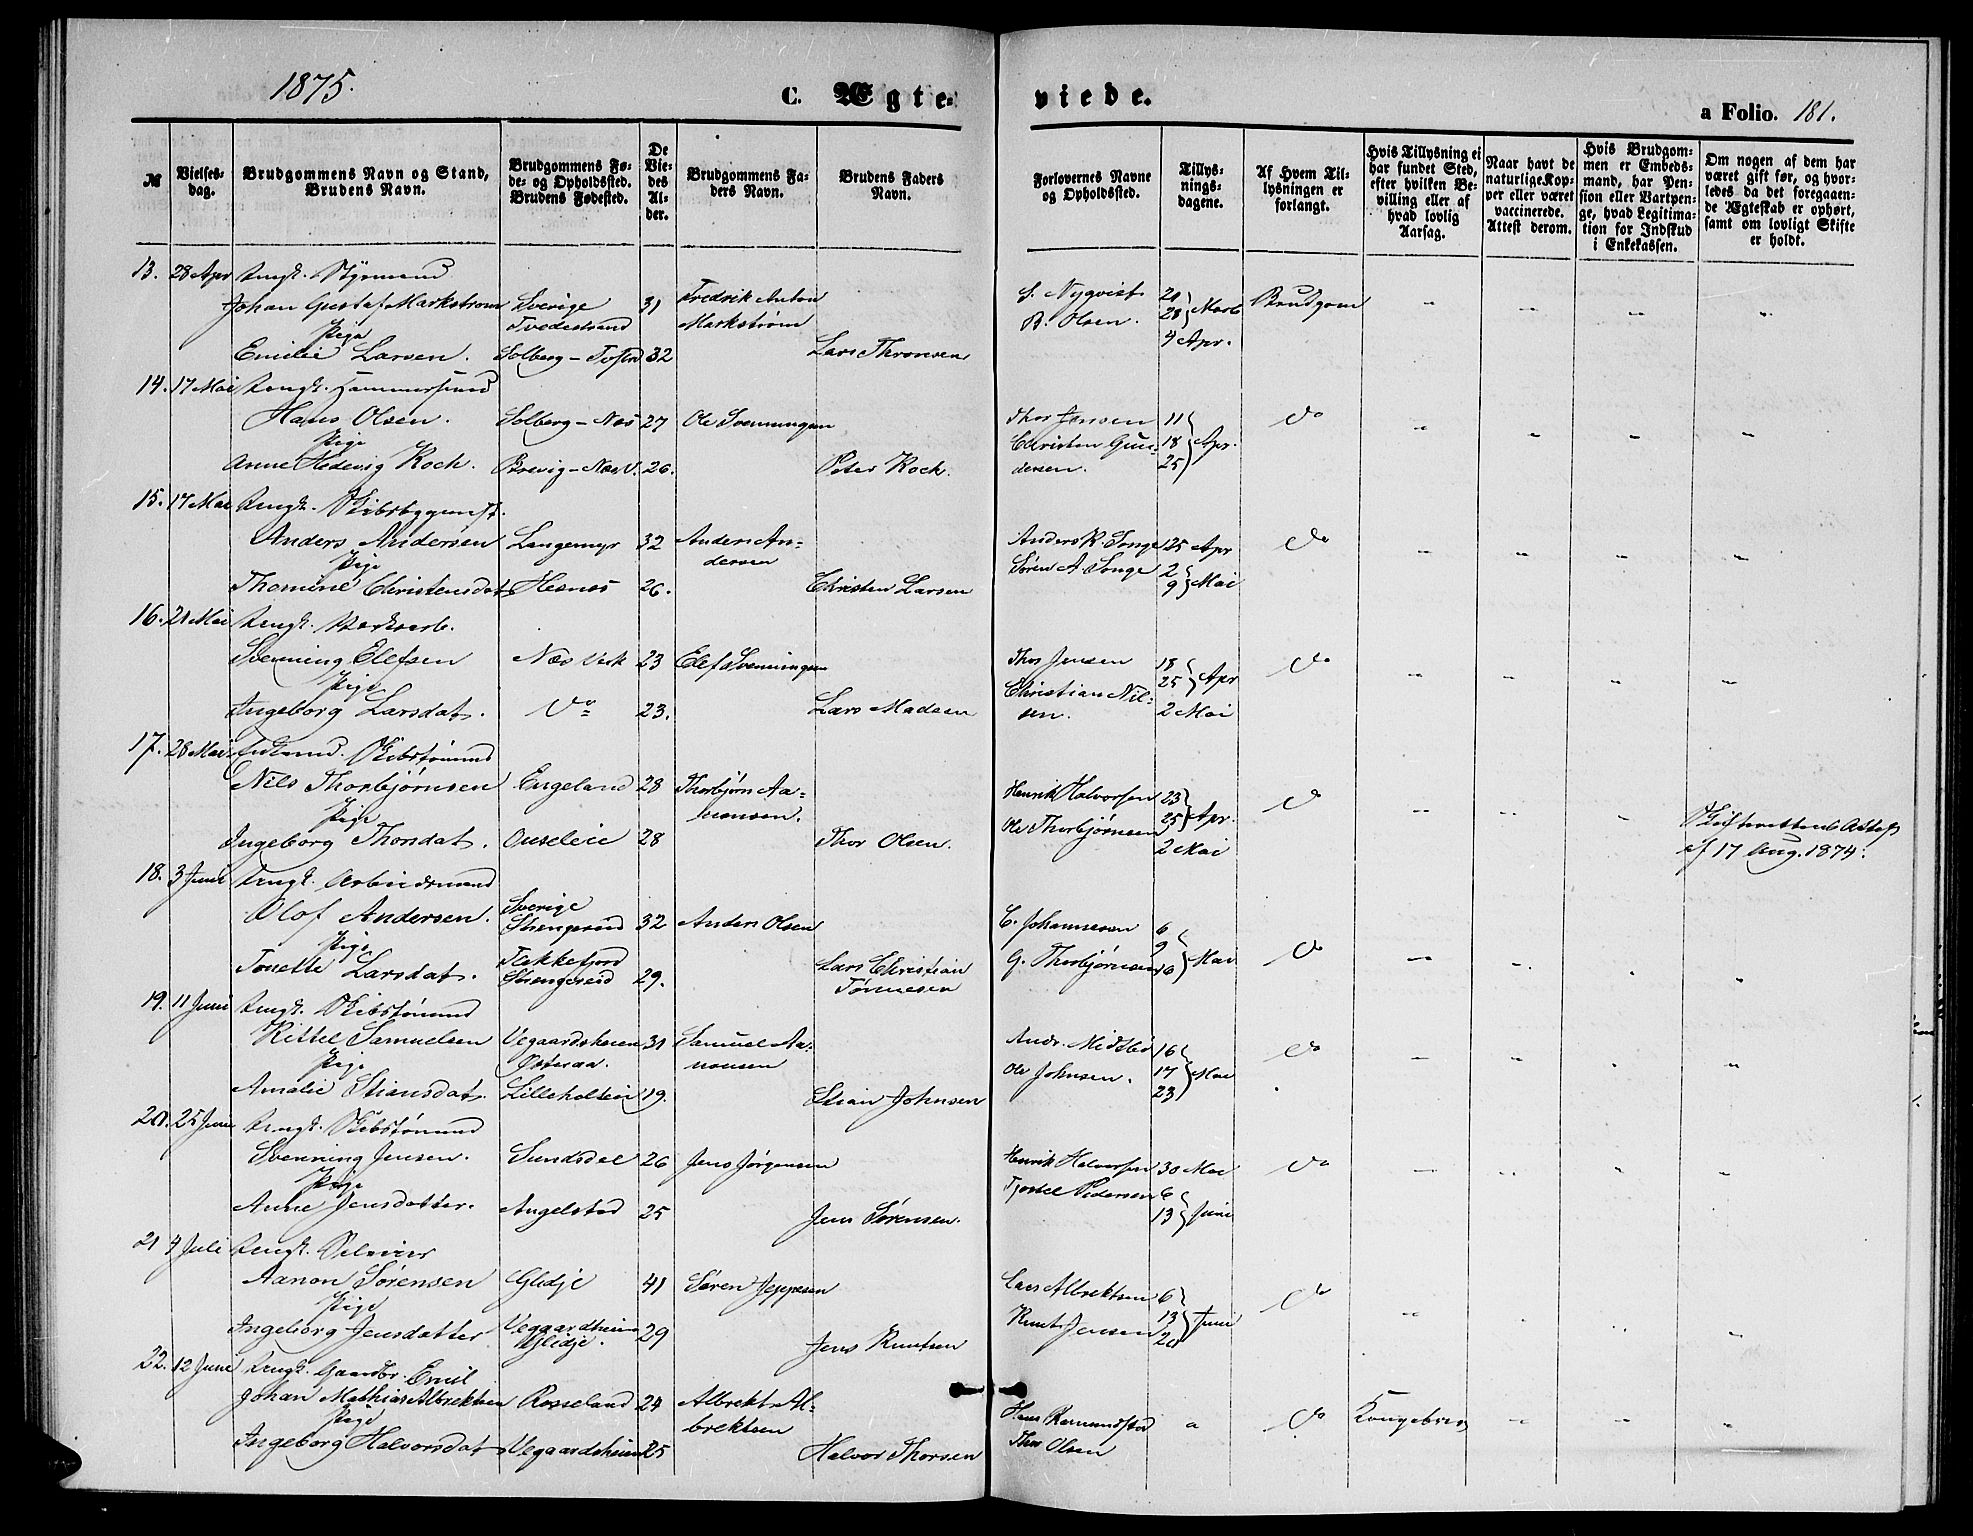 1875.
C. Ægte-
viede.
a Folio. 181.
№
Vielses-
dag.
Brudgommens Navn og Stand,
Brudens Navn.
Brudgommens Fø-
de- og Opholdssted.
Brudens Fødested.
De
Vie-
des
Al-
der.
Brudgommens Fa-
ders Navn.
Brudens Faders
Navn.
Forlovernes Navne
og Opholdssted.
Tillys-
nings-
dagene.
Af Hvem Til-
lysningen er
forlangt.
Hvis Tillysning ei
har fundet Sted,
efter hvilken Be-
villing eller af
hvad lovlig
Aarsag.
Naar havt de
naturlige Kop-
per eller været
vaccinerede.
Attest derom.
Hvis Brudgom-
men er Embeds-
mand, har Pen-
sion eller Vartpen-
ge, hvad Legitima-
tion for Indskud
i Enkekassen.
Om nogen af dem har
været gift før, og hvor-
ledes da det foregaaen-
de Ægteskab er ophørt,
samt om lovligt Skifte
er holdt.
13. 28 Apr Ungk. Styrmand
Johan Gustaf Markstrøm Sverige 31 Fredrik Anton S. Nyqvist 21 Brudgom
Tvedestrand Markstrøm B. Olsen. 28 Marts
Pige
Emilie Larsen. Solberg - 32 Lars Thronsen 4 Apr.
14. 17 Mai Ungk.
Hans Olsen. Solberg - Næs 27 Ole Svenningsen Thor Jensen 11 Do
Pige Christen Gun- 18 Apr.
Anne Hedevig Koch. Brevig - Næs V. 26. Peter Koch. dersen. 25
15. 17 Mai Ungk.
Anders Andersen Langemyr 32 Anders An- Anders K. Songe 25 Apr Do
Pige dersen Søren A. Songe 2
Thomine Christensdat Hesnes 26. Christen Larsen 9 Mai
16. 21 Mai Ungk. Værksarb.
Svenning Elefsen Næs Verk 23 Elef Svenningsen Thor Jensen 18 Do
Pige Christian Nil- 25 Apr
Ingeborg Larsdat. Do 23. Lars Madsen sen. 2 Mai
17. 28 Mai Enkemd. Skibstømmd
Nils Thorbjørnsen Engeland 28 Thorbjørn Aa- Henrik Halvorsen 23 Do
Pige nonsen. Ole Thorbjørnsen 25 Apr. Skifterettens Attest
Ingeborg Thorsdat. Ouseleie 28 Thor Olsen. 2 Mai af 17 Aug. 1874.
18. 3 Juni Ungk. Arbeidsmand
Olof Andersen. Sverige 32 Anders Olsen C. Johannesen 6
Strengereid
Pige Flekkefjord 9 Do
Tonette Larsdat. Strengereid 29. Lars Christian G. Thorbjørnsen 16 Mai
Tønnesen
19. 11 Juni Ungk. Skibstømmd
Kittel Samuelsen Vegaardsheien 31 Samuel Aa- Andr. Midtbø 16 Do
Pige Østeraa. nonsen Ole Johnsen. 17 Mai
Amalie Stiansdat. Lilleholtein 19. Stian Johnsen 23
20. 25 Juni Ungk. Skibstømmd
Svenning Jensen. Sundsdal 26 Jens Jørgensen Henrik Halvorsen 30 Mai Do
Pige Tjostel Pedersen 6
Anne Jensdatter. Angelstad 25 Jens Sørensen. 13 Juni
21 4 Juli Ungk. Selveier
Aanon Sørensen Glidje 41 Søren Jeppesen Lars Albrektsen 6 Do
Pige 13 Juni
Ingeborg Jensdatter Vegaardsheien 29 Jens Knutsen Knut Jensen 20
Glidje.
22. 12 Juni Ungk. Gaardbr. Emil
Johan Mathias Albrektsen Rosseland 24 Albrekt Al- Hans Ramundstad a Do Kongebrev
Pige brektsen Thor Olsen
Ingeborg Halvorsdat Vegaardsheien 25 Halvor Thorsen